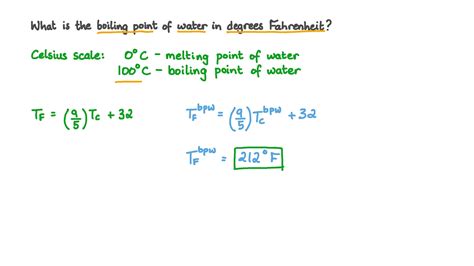 What is the boiling point of water in degrees Fahrenheit?
Celsius scale: 0°C – melting point of water
100°C – boiling point of water
T_F = (9/5)T_C + 32
T_F^bpw = (9/5)T_C^bpw + 32
T_F^bpw = 212°F